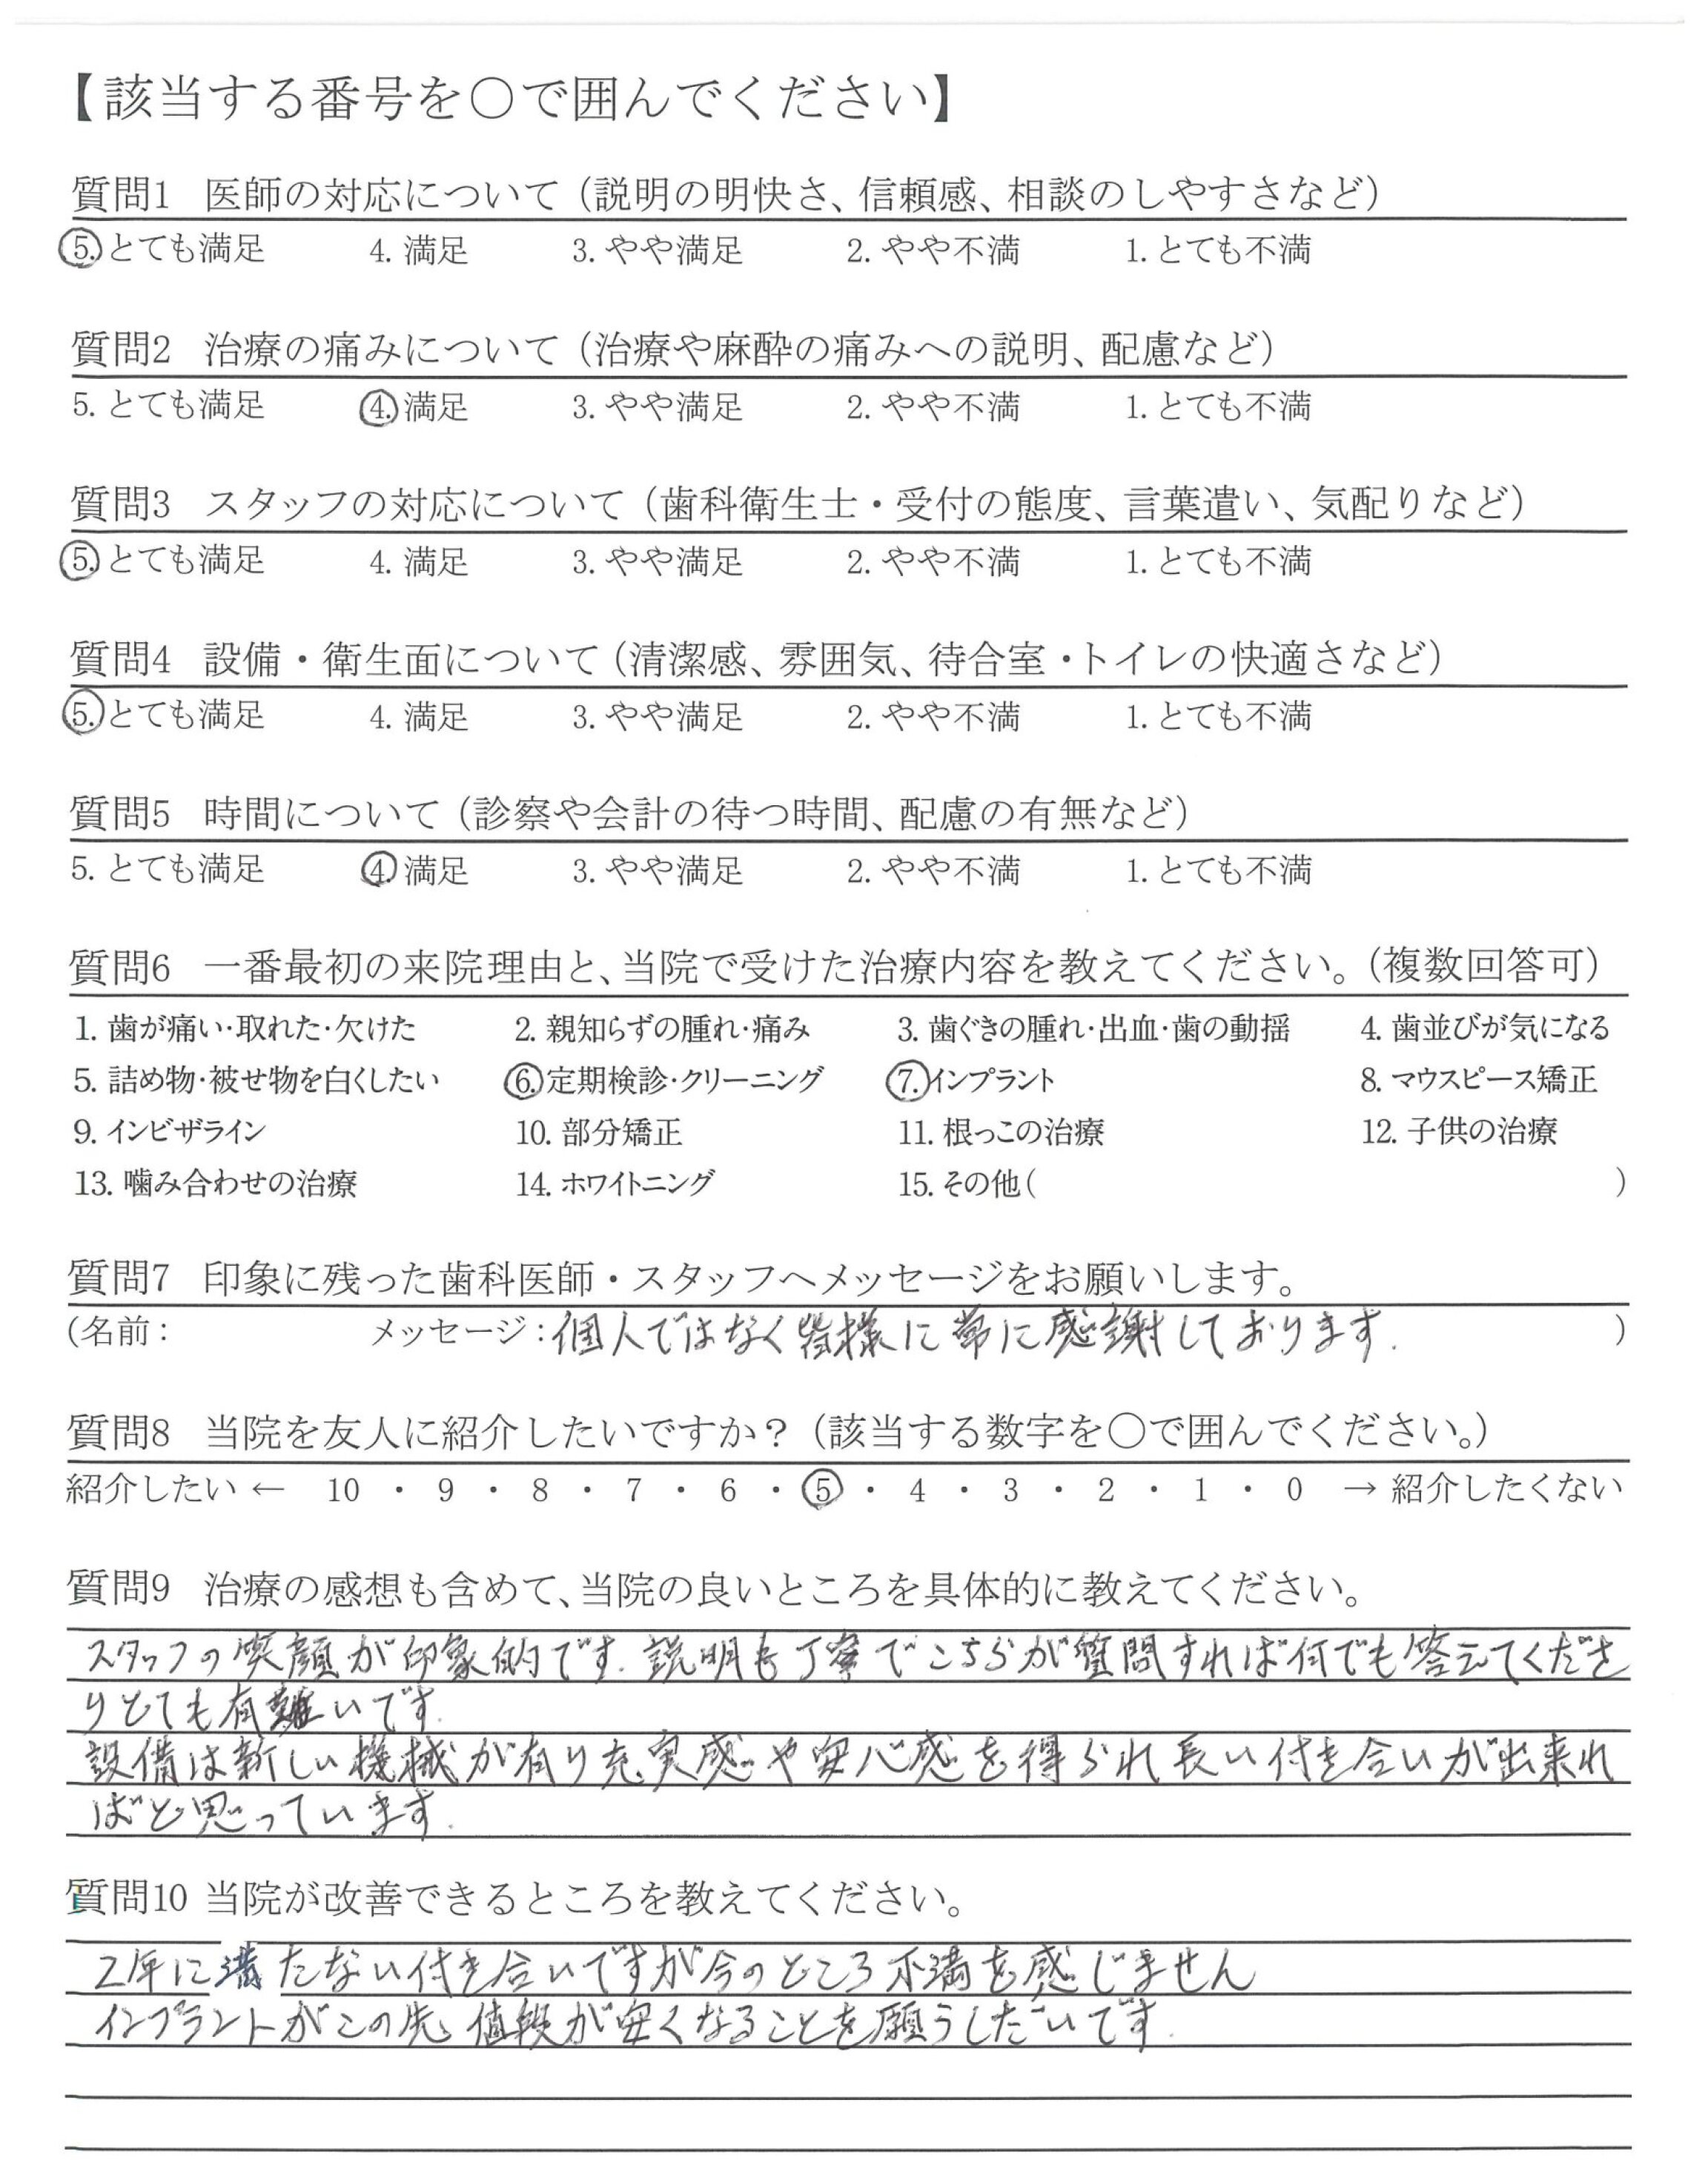 【該当する番号を〇で囲んでください】
質問1 医師の対応について（説明の明快さ、信頼感、相談のしやすさなど）
5. とても満足 4. 満足 3. やや満足 2. やや不満 1. とても不満
質問2 治療の痛みについて（治療や麻酔の痛みへの説明、配慮など）
5. とても満足 4. 満足 3. やや満足 2. やや不満 1. とても不満
質問3 スタッフの対応について（歯科衛生士・受付の態度、言葉遣い、気配りなど）
5. とても満足 4. 満足 3. やや満足 2. やや不満 1. とても不満
質問4 設備・衛生面について（清潔感、雰囲気、待合室・トイレの快適さなど）
5. とても満足 4. 満足 3. やや満足 2. やや不満 1. とても不満
質問5 時間について（診察や会計の待つ時間、配慮の有無など）
5. とても満足 4. 満足 3. やや満足 2. やや不満 1. とても不満
質問6 一番最初の来院理由と、当院で受けた治療内容を教えてください。（複数回答可）
1. 歯が痛い・取れた・欠けた 2. 親知らずの腫れ・痛み 3. 歯ぐきの腫れ・出血・歯の動揺 4. 歯並びが気になる
5. 詰め物・被せ物を白くしたい 6. 定期検診・クリーニング 7. インプラント 8. マウスピース矯正
9. インビザライン 10. 部分矯正 11. 根っこの治療 12. 子供の治療
13. 噛み合わせの治療 14. ホワイトニング 15. その他（ ）
質問7 印象に残った歯科医師・スタッフへメッセージをお願いします。
（名前： メッセージ：個人ではなく皆様に常に感謝しております. ）
質問8 当院を友人に紹介したいですか？（該当する数字を〇で囲んでください。）
紹介したい ← 10 ・ 9 ・ 8 ・ 7 ・ 6 ・ 5 ・ 4 ・ 3 ・ 2 ・ 1 ・ 0 → 紹介したくない
質問9 治療の感想も含めて、当院の良いところを具体的に教えてください。
スタッフの笑顔が印象的です. 説明も丁寧でこちらが質問すれば何でも答えてくださ
りとても有難いです.
設備は新しい機械が有り充実感や安心感を得られ長い付き合いが出来れ
ばと思っています.
質問10 当院が改善できるところを教えてください。
2年に満たない付き合いですが今のところ不満を感じません
インプラントがこの先 値段が安くなることを願うしだいです.